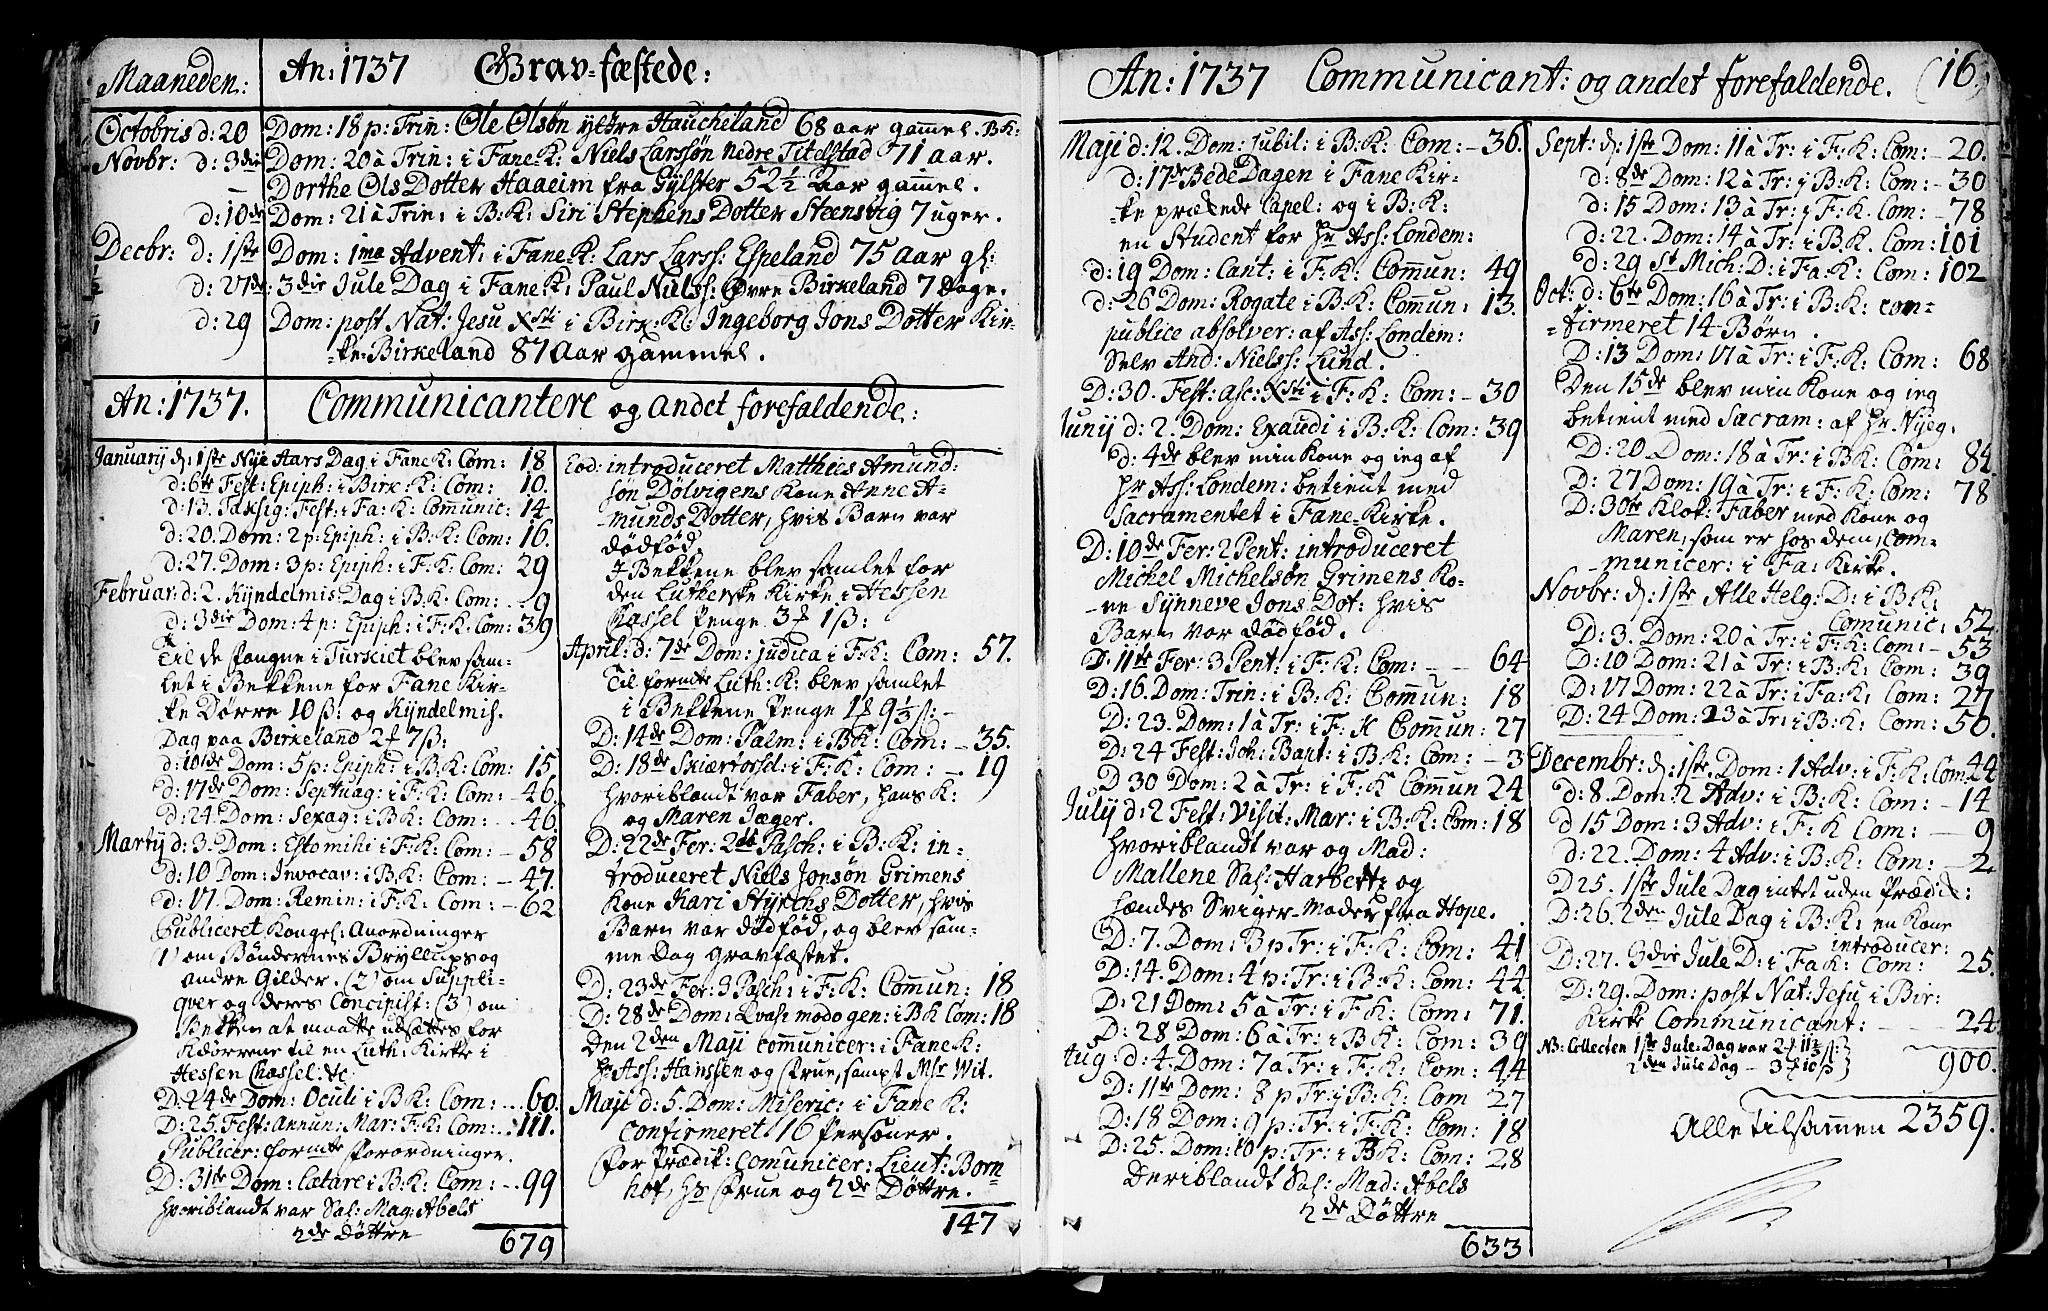 Maaneden: An: 1737 Grav-fæstede:
Octobris d: 20 Dom: 18 p: Trin: Ole Olsøn ydtre Haucheland 68 aar gammel. BK:
Novbr: d: 3die Dom: 20 à Trin: i Fane K: Niels Larssøn Nedre Titelstad 71 aar.
– Dorthe Ols Dotter Haaeim fra Gylster 52 1/2 Aar gammel.
d: 10de Dom: 21 à Trin: i B: K: Siri Stephens Dotter Steensvig 7 uger.
Decbr: d: 1ste Dom: 1ma Advent: i Fane K: Lars Larss: Espeland 75 Aar gl:
d: 27de: 3die Jule Dag i Fane K: Paul Niels: Øvre Birkeland 7 Dage.
d: 29 Dom: post Nat: Jesu Xsti i Birk: K: Ingeborg Jons Dotter Kir-
ke-Birkeland 87 Aar gammel.
An: 1737. Communicantere og andet forefaldende:
January d: 1ste Nye Aars Dag i Fane K: Com: 18
d: 6te Fest: Epiph: i Birk: K: Com: 10.
d: 13. Faksig: Fest: i Fa: K: Comunic: 14
d: 20. Dom: 2 p: Epiph: i B: K: Com: 16.
d: 27. Dom: 3 p: Epiph: i F: K: Com: 29
Februar: d: 2. Kyndelmis: Dag i B: K: Com: . . 9
d: 3die Dom: 4 p: Epiph: i F: K: Com: 39
Til de fangne i Turkiet blev sam-
let i Bekkene for Fane Kir-
ke Dørre 10 ß: og Kyndelmis.
Dag paa Birkeland 2 ₰ 7 ß:
d: 10de Dom: 5 p: Epiph: i B: K: Com: 15
d: 17de Dom: Septuag: i F: K: Com: – 46.
d: 24. Dom: Sexag: i B: K: Com: – 46.
Marty d: 3. Dom: Esto mihi i F: K: Com: – 58.
d: 10 Dom: Invocav: i B: K: Com: – 47.
d: 17. Dom: Remin: i F: K: Com: – 62
Publiceret Kongel: Anordninger
1) om Bøndernes Bryllups og
andre Gilder. (2) om Suppli-
qver og deres Concipist: (3) om
Bekken at maatte udsættes for
Kdørrene til en Luth: Kirke i
Hessen Chassel: &c:
D: 24de Dom: Oculi i B: K: Com: . . . 60.
D: 25. Fest: Annun: Mar: F: K: Com: . . 111.
Publicer: formte forordninger.
D: 31te Dom: Lætare i B: K: Com: – . 99
hvoriblandt var Sal: Mag: Abels
2de Døttre
679
Eod: introduceret Matthies Amund:
søn Dølvigens Kone Anne A-
munds Dotter, hvis Barn var
dødfød.
I Bekkene blev samlet for
den Lutherske Kirke i Hessen
Cassel Penge 3 ₰ 1 ß:
April: d: 7de Dom: judica i F: K: Com: 57.
Til formte Luth: K: blev samlet
i Bekkene Penge 1 ₰ 9 1/3 ß: –
D: 14de Dom: Palm: i B: K: Com: – 35.
D: 18de Skiærtorsd: i F: K: Com: – 19
hvoriblandt var Faber, hans K:
og Maren Jæger.
D: 22de Fer: 2da Pasch: i B: K: in-
troduceret Niels Jonsøn Grimens
Kone Kari Styrchs Dotter, hvis
Barn var dødfød, og blev sam-
me Dag gravfæstet.
D: 23de Fer: 3 Pasch: i F: K: Commun: 18
D: 28de Dom: Qvasi modo gen: i B K Com: 18
Den 2den Maji communicer: i Fane K:
Hr Ass: Hanssen og Frue, sampt Msr Wit.
Maji d: 5. Dom: Miseric: i Fane K:
confirmeret 16 Personer.
For Prædik: comunicer: Lieut: Born-
hof, hs Frue og 2de Døttre.
147
An: 1737 Communicant: og andet forefaldende. (16)
Maji d: 12. Dom: Jubil: i B: K: Com: – 36.
d: 17de Bede Dagen i Fane Kir-
ke prækede Capel: og i B: K:
en Student for Hr Ass: Londem:
d: 19 Dom: Cant: i F: K: Commun: 49
d: 26 Dom: Rogate i B: K: Comun: 13.
publice absolver: af Ass: Londem:
Selv And: Nielss: Lund.
D: 30. Fest: asc: Xsti i F: K: Com: – 30
Juny d: 2. Dom: Exaudi i B: K: Com: 39
d: 4de blev min Kone og ieg af
Hr Ass: Londem: betient med
Sacramentet i Fane-Kirke.
D: 10de Fer: 2 Pent: introduceret
Michel Michelsøn Grimens Ko-
ne Synneve Jons Dot: hvis
Barn var dødfød.
D: 11te Fer: 3 Pent: i F: K: Com: – – 64
D: 16. Dom: Trin: i B: K: Commun: 18
D: 23. Dom: 1 à Tr: i F: K Commun: 27
D: 24 Fest: Joh: Bapt: i B: K: Com: – 3
D 30 Dom: 2 à Tr: i F: K Commun 24
July d: 2 Fest: Visit: Mar: i B: K: Com: 18
hvoriblandt var og Mad:
Mallene Sal: Harbetts og
hændes Sviger-Moder fra Hope.
D: 7. Dom: 3 p Tr: i F: K: Com: 41
D: 14. Dom: 4 p: Tr: i B: K: Com: 44
D: 21 Dom: 5 à Tr: i F: K: Com: 71.
D: 28 Dom: 6 à Tr: i B: K: Com: 39
Aug: d: 4. Dom: 7 a Tr: i F: K: Com: – 44
D: 11te Dom: 8 p Tr: i B: K: Com 27
D: 18 Dom: 9 p: Tr: i F: K: Com: 18
D: 25. Dom: 10 p: Tr: i B: K: Com: 28
Deriblandt Sal: Mad: Abels
2de Døttre
633
Sept: d: 1ste Dom: 11 à Tr: i F: K: Com: – 20.
d: 8de Dom: 12 à Tr: i B: K: Com: – 30
d: 15 Dom: 13 à Tr: i F: K. Com: – 78
d: 22. Dom: 14 à Tr: i B: K. Com: 101
d: 29 St Mich: D: i Fa: K: Com: 102
Oct: d: 6te Dom: 16 à Tr: i B: K: con-
firmeret 14 Børn.
D: 13 Dom: 17 à Tr: i F: K: Com: 68
Den 15de blev min Kone og ieg
betient med Sacram: af Hr Nyeg.
D: 20 Dom: 18 à Tr: i B: K: Com: 84
D: 27 Dom: 19 à Tr: i F: K: Com: 78
D: 30te Klok: Faber med Kone og
Maren, som er hos dem, Com-
municer: i Fa: Kirke.
Novbr: d: 1ste Alle Helg: D: i B: K:
Comunic: 52
D: 3. Dom: 20 à Tr: i F: K: Com: – 53
D: 10 Dom: 21 à Tr: i B: K: Com: 39
D: 17 Dom: 22 à Tr: i Fa: K: Com: 27
D: 24 Dom: 23 à Tr: i B: K: Com: 50.
Decembr: d: 1ste Dom: 1 Adv: i F: K: Com 44
d: 8. Dom: 2 Adv: i B: K: Com: – 14
d 15 Dom: 3 Adv: i F: K Com: – 9
d: 22. Dom: 4 Adv: i B: K: Com: – 2
D 25. 1ste Jule Dag intet uden Prædik:
D: 26. 2den Jule Dag i B: K: en Kone
introducer:
D: 27. 3die Jule D: i Fa K: Com: 25.
D: 29. Dom: post Nat: Jesu i Bir:
Kirke Communicant: – – – 24
NB: Collecten 1ste Jule: Dag var 2 ₰ 11 1/2 ß:
2den Jule Dag – 3 ₰ 10 ß
900.
Alle tilsammen 2359.